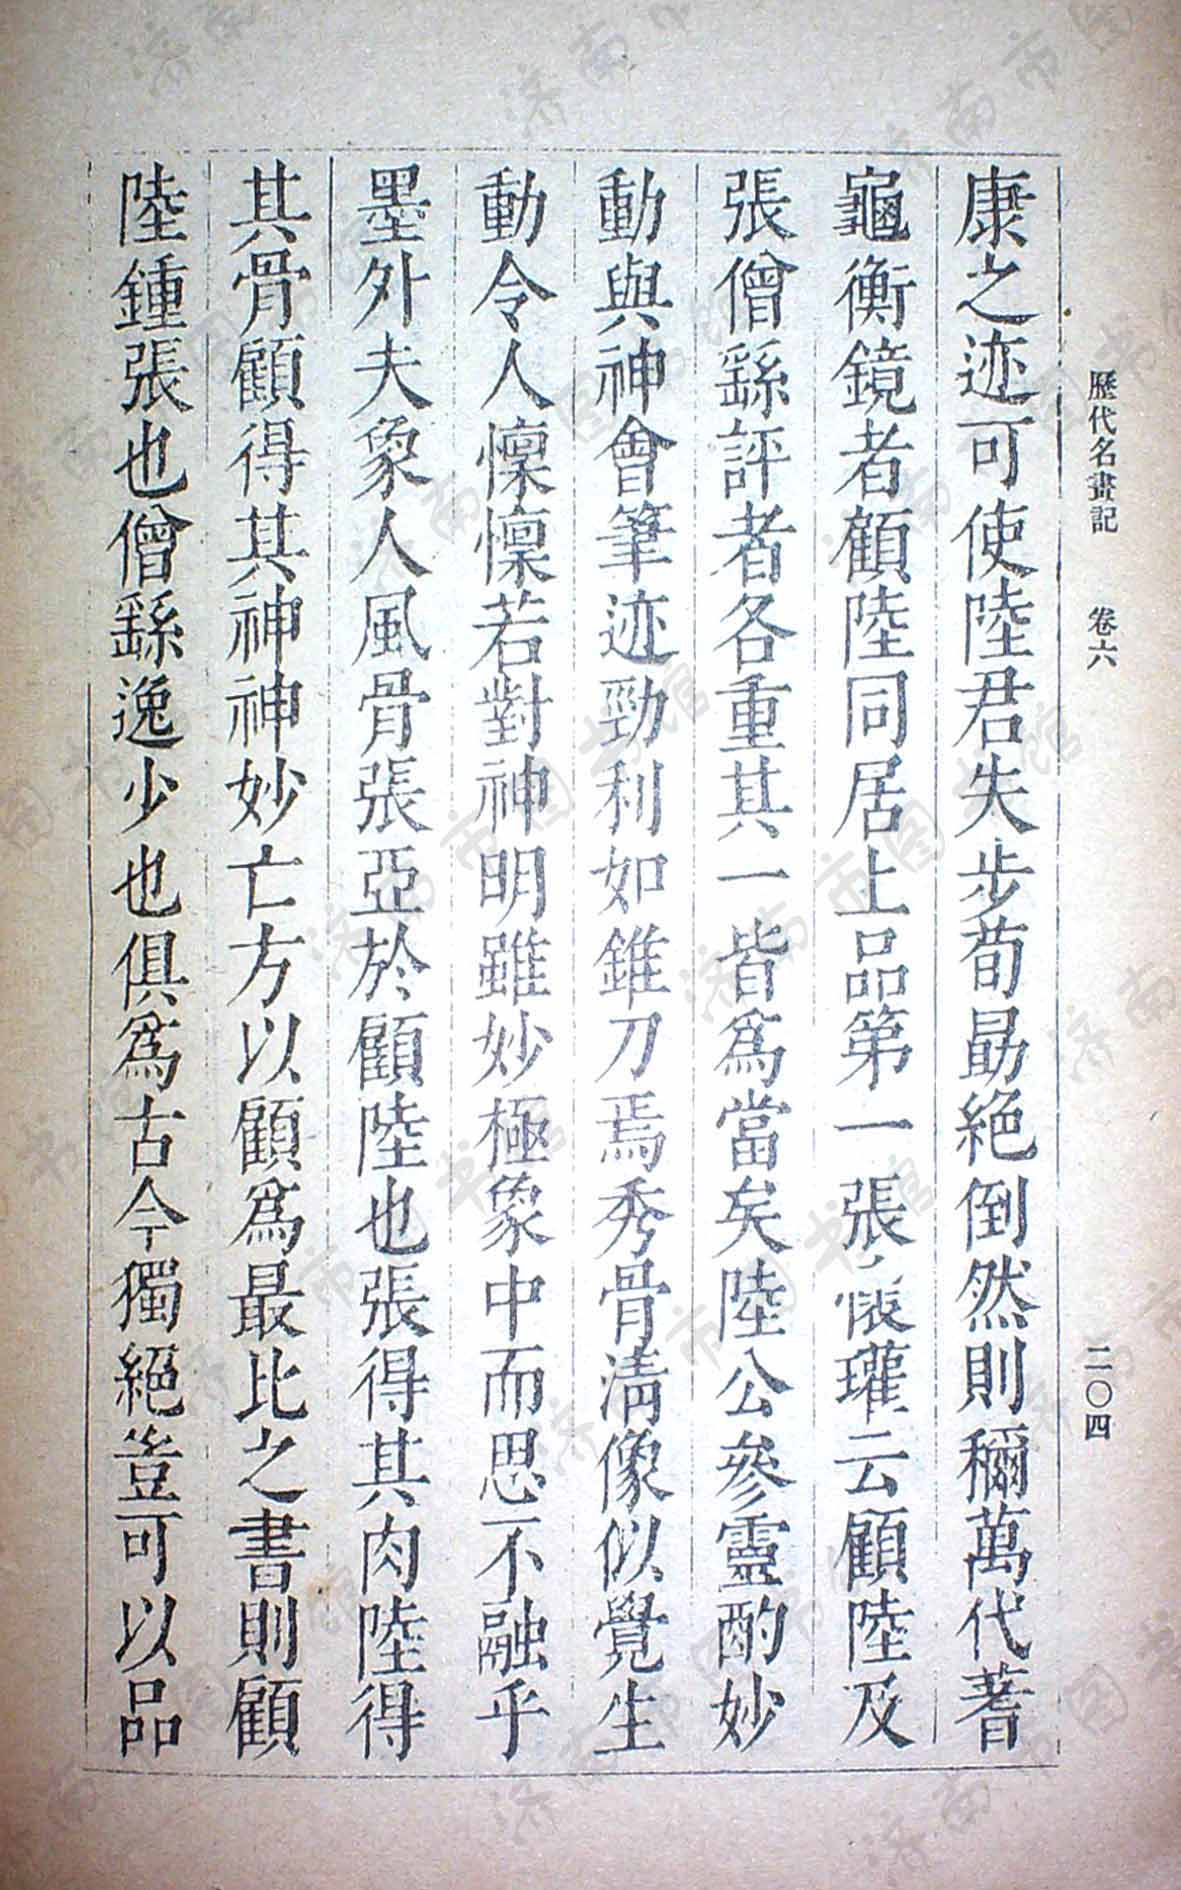 歷代名畫記 卷六 二〇四
康之迹可使陸君失步荀勗絕倒然則稱萬代蓍
龜衡鏡者顧陸同居上品第一張懷瓘云顧陸及
張僧繇評者各重其一皆爲當矣陸公參靈酌妙
動與神會筆迹勁利如錐刀焉秀骨淸像似覺生
動令人懍懍若對神明雖妙極象中而思不融乎
墨外夫象人風骨張亞於顧陸也張得其肉陸得
其骨顧得其神神妙亡方以顧爲最比之書則顧
陸鍾張也僧繇逸少也俱爲古今獨絕豈可以品
济南市图书馆